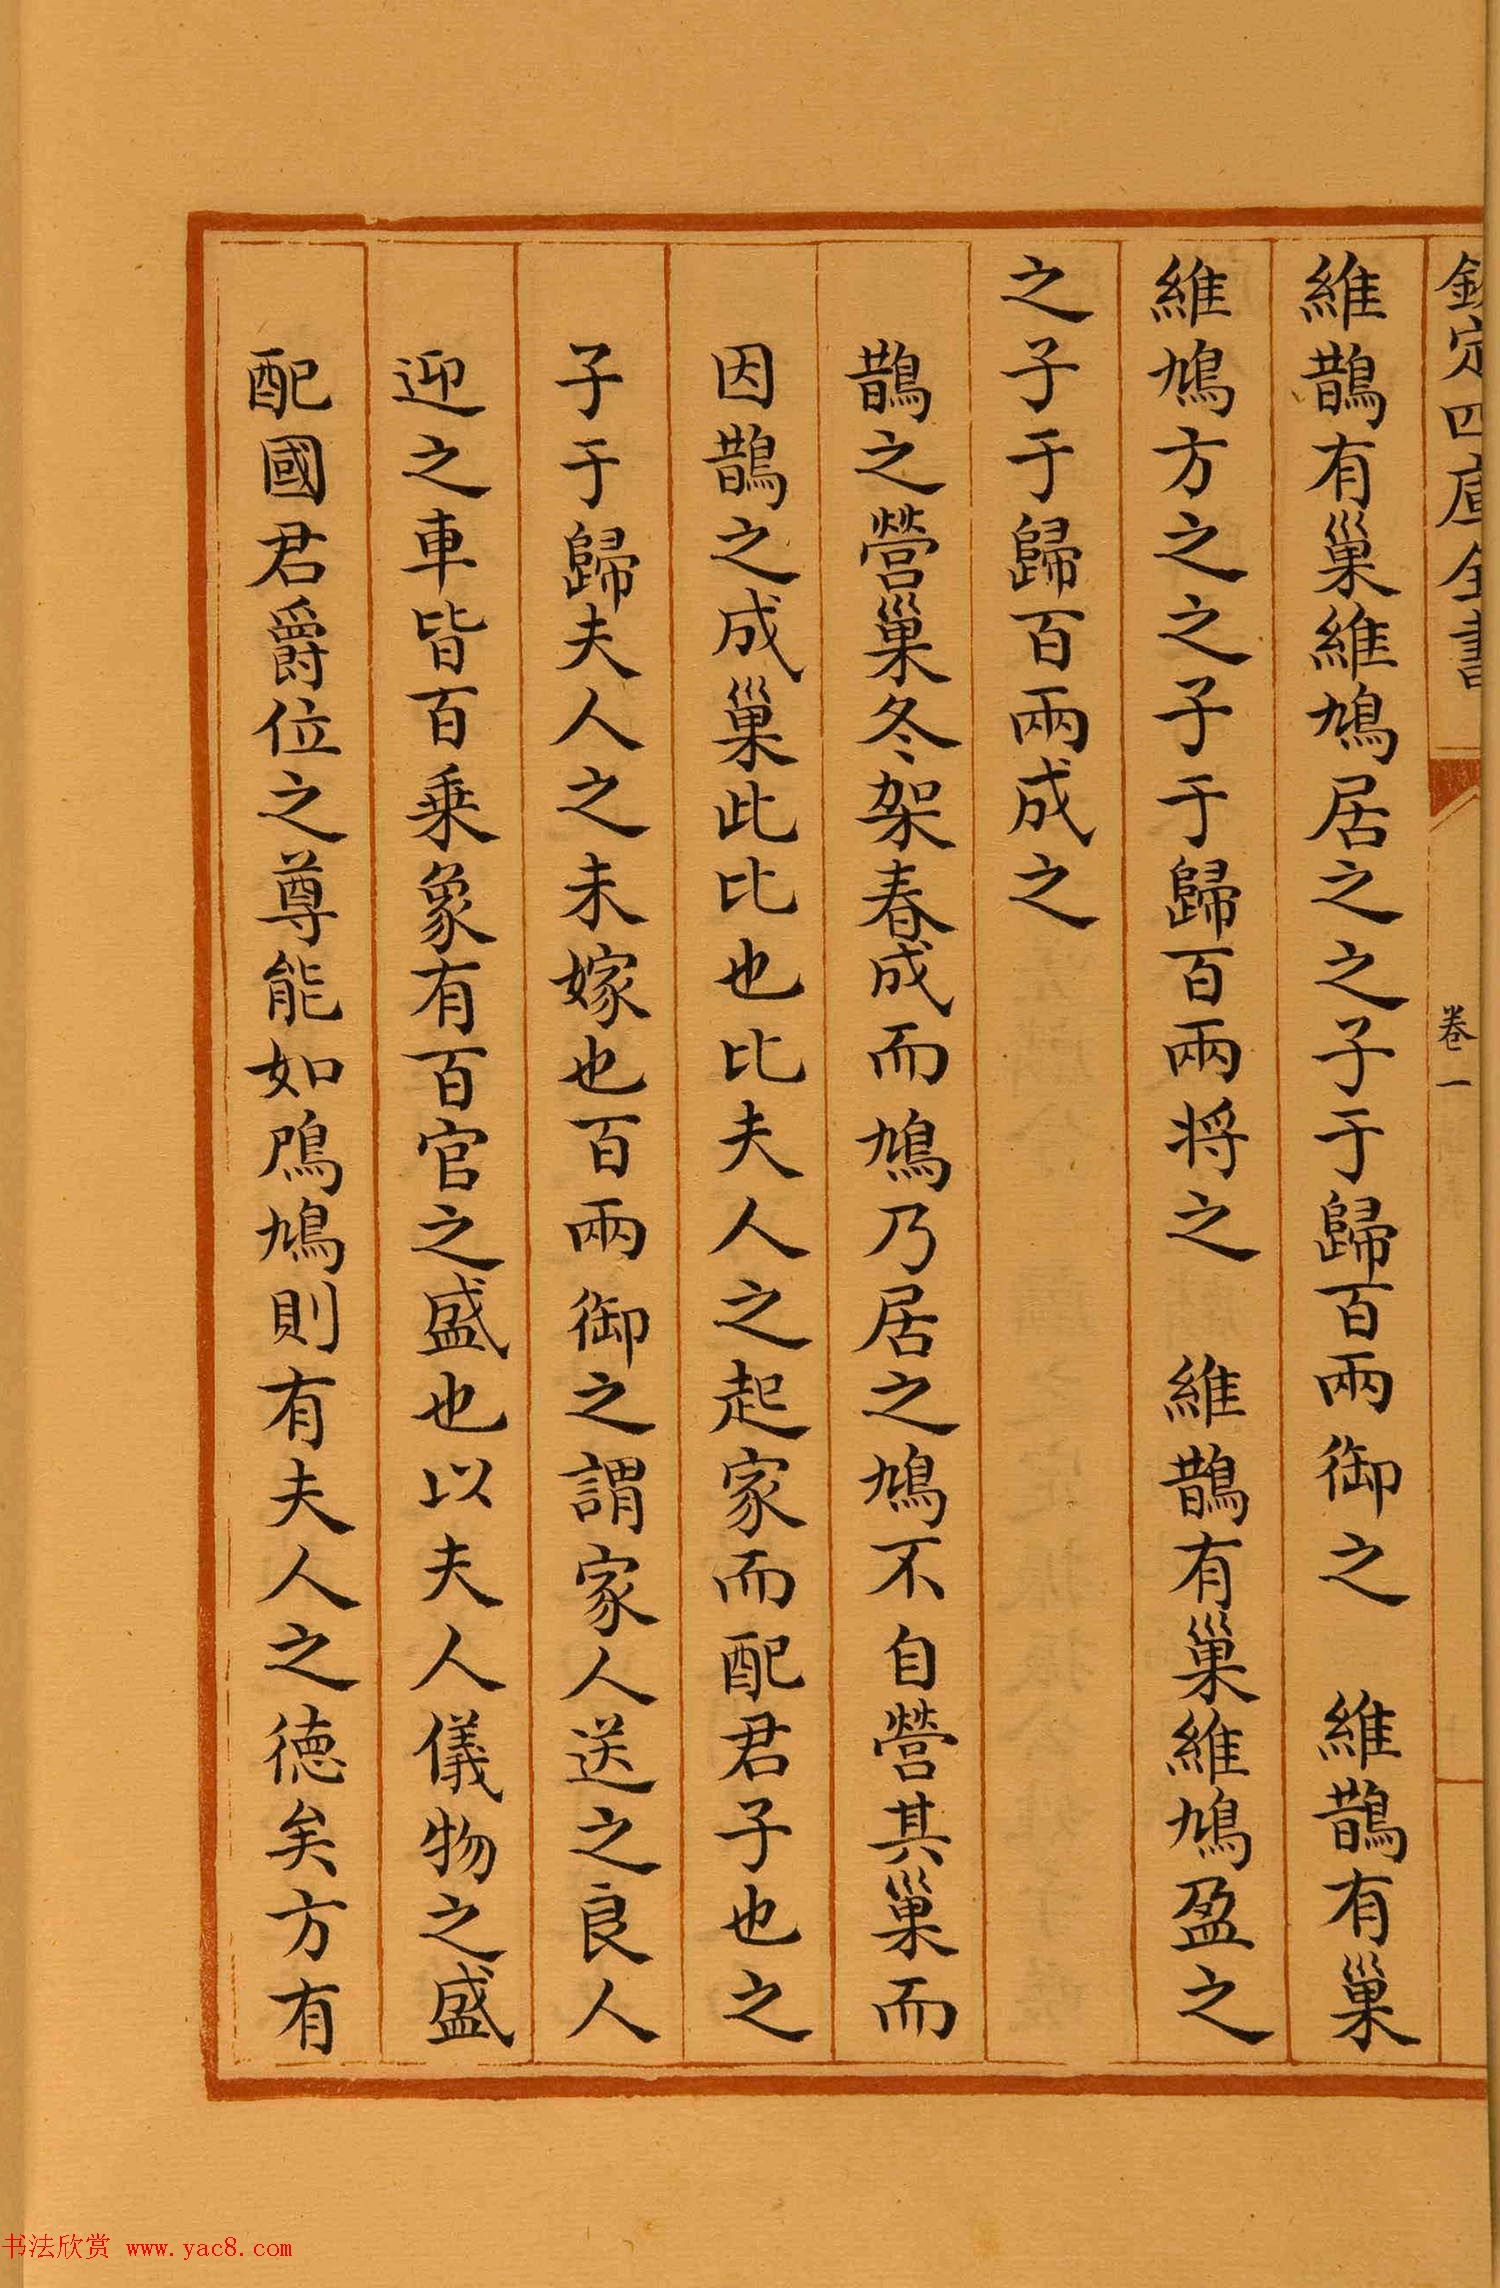 欽定四庫全書
卷一
維鵲有巢維鳩居之之子于歸百兩御之 維鵲有巢
維鳩方之之子于歸百兩将之 維鵲有巢維鳩盈之
之子于歸百兩成之
鵲之營巢冬架春成而鳩乃居之鳩不自營其巢而
因鵲之成巢此比也比夫人之起家而配君子也之
子于歸夫人之未嫁也百兩御之謂家人送之良人
迎之車皆百乗象有百官之盛也以夫人儀物之盛
配國君爵位之尊能如鳲鳩則有夫人之徳矣方有
书法欣赏 www.yac8.com